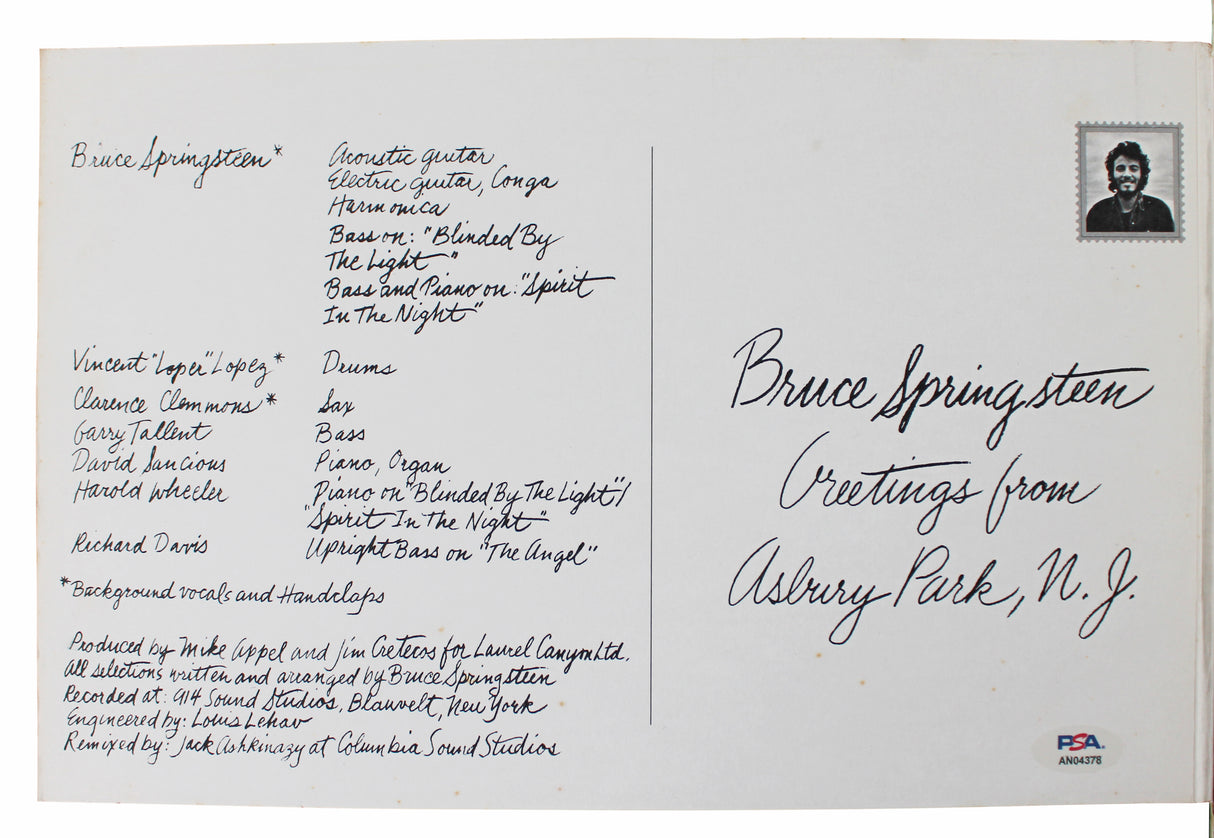 Bruce Springsteen* Acoustic guitar
Electric guitar, Conga
Harmonica
Bass on: "Blinded By
The Light"
Bass and Piano on: "Spirit
In The Night"
Vincent "Loper" Lopez* Drums
Clarence Clemmons* Sax
Garry Tallent Bass
David Sancious Piano, Organ
Harold Wheeler Piano on "Blinded By The Light"/
"Spirit In The Night"
Richard Davis Upright Bass on "The Angel"
*Background vocals and Handclaps
Produced by Mike Appel and Jim Cretecos for Laurel Canyon Ltd.
All selections written and arranged by Bruce Springsteen
Recorded at: 914 Sound Studios, Blauvelt, New York
Engineered by: Louis Lehav
Remixed by: Jack Ashkinazy at Columbia Sound Studios
Bruce Springsteen
Greetings from
Asbury Park, N.J.
PSA
AN04378